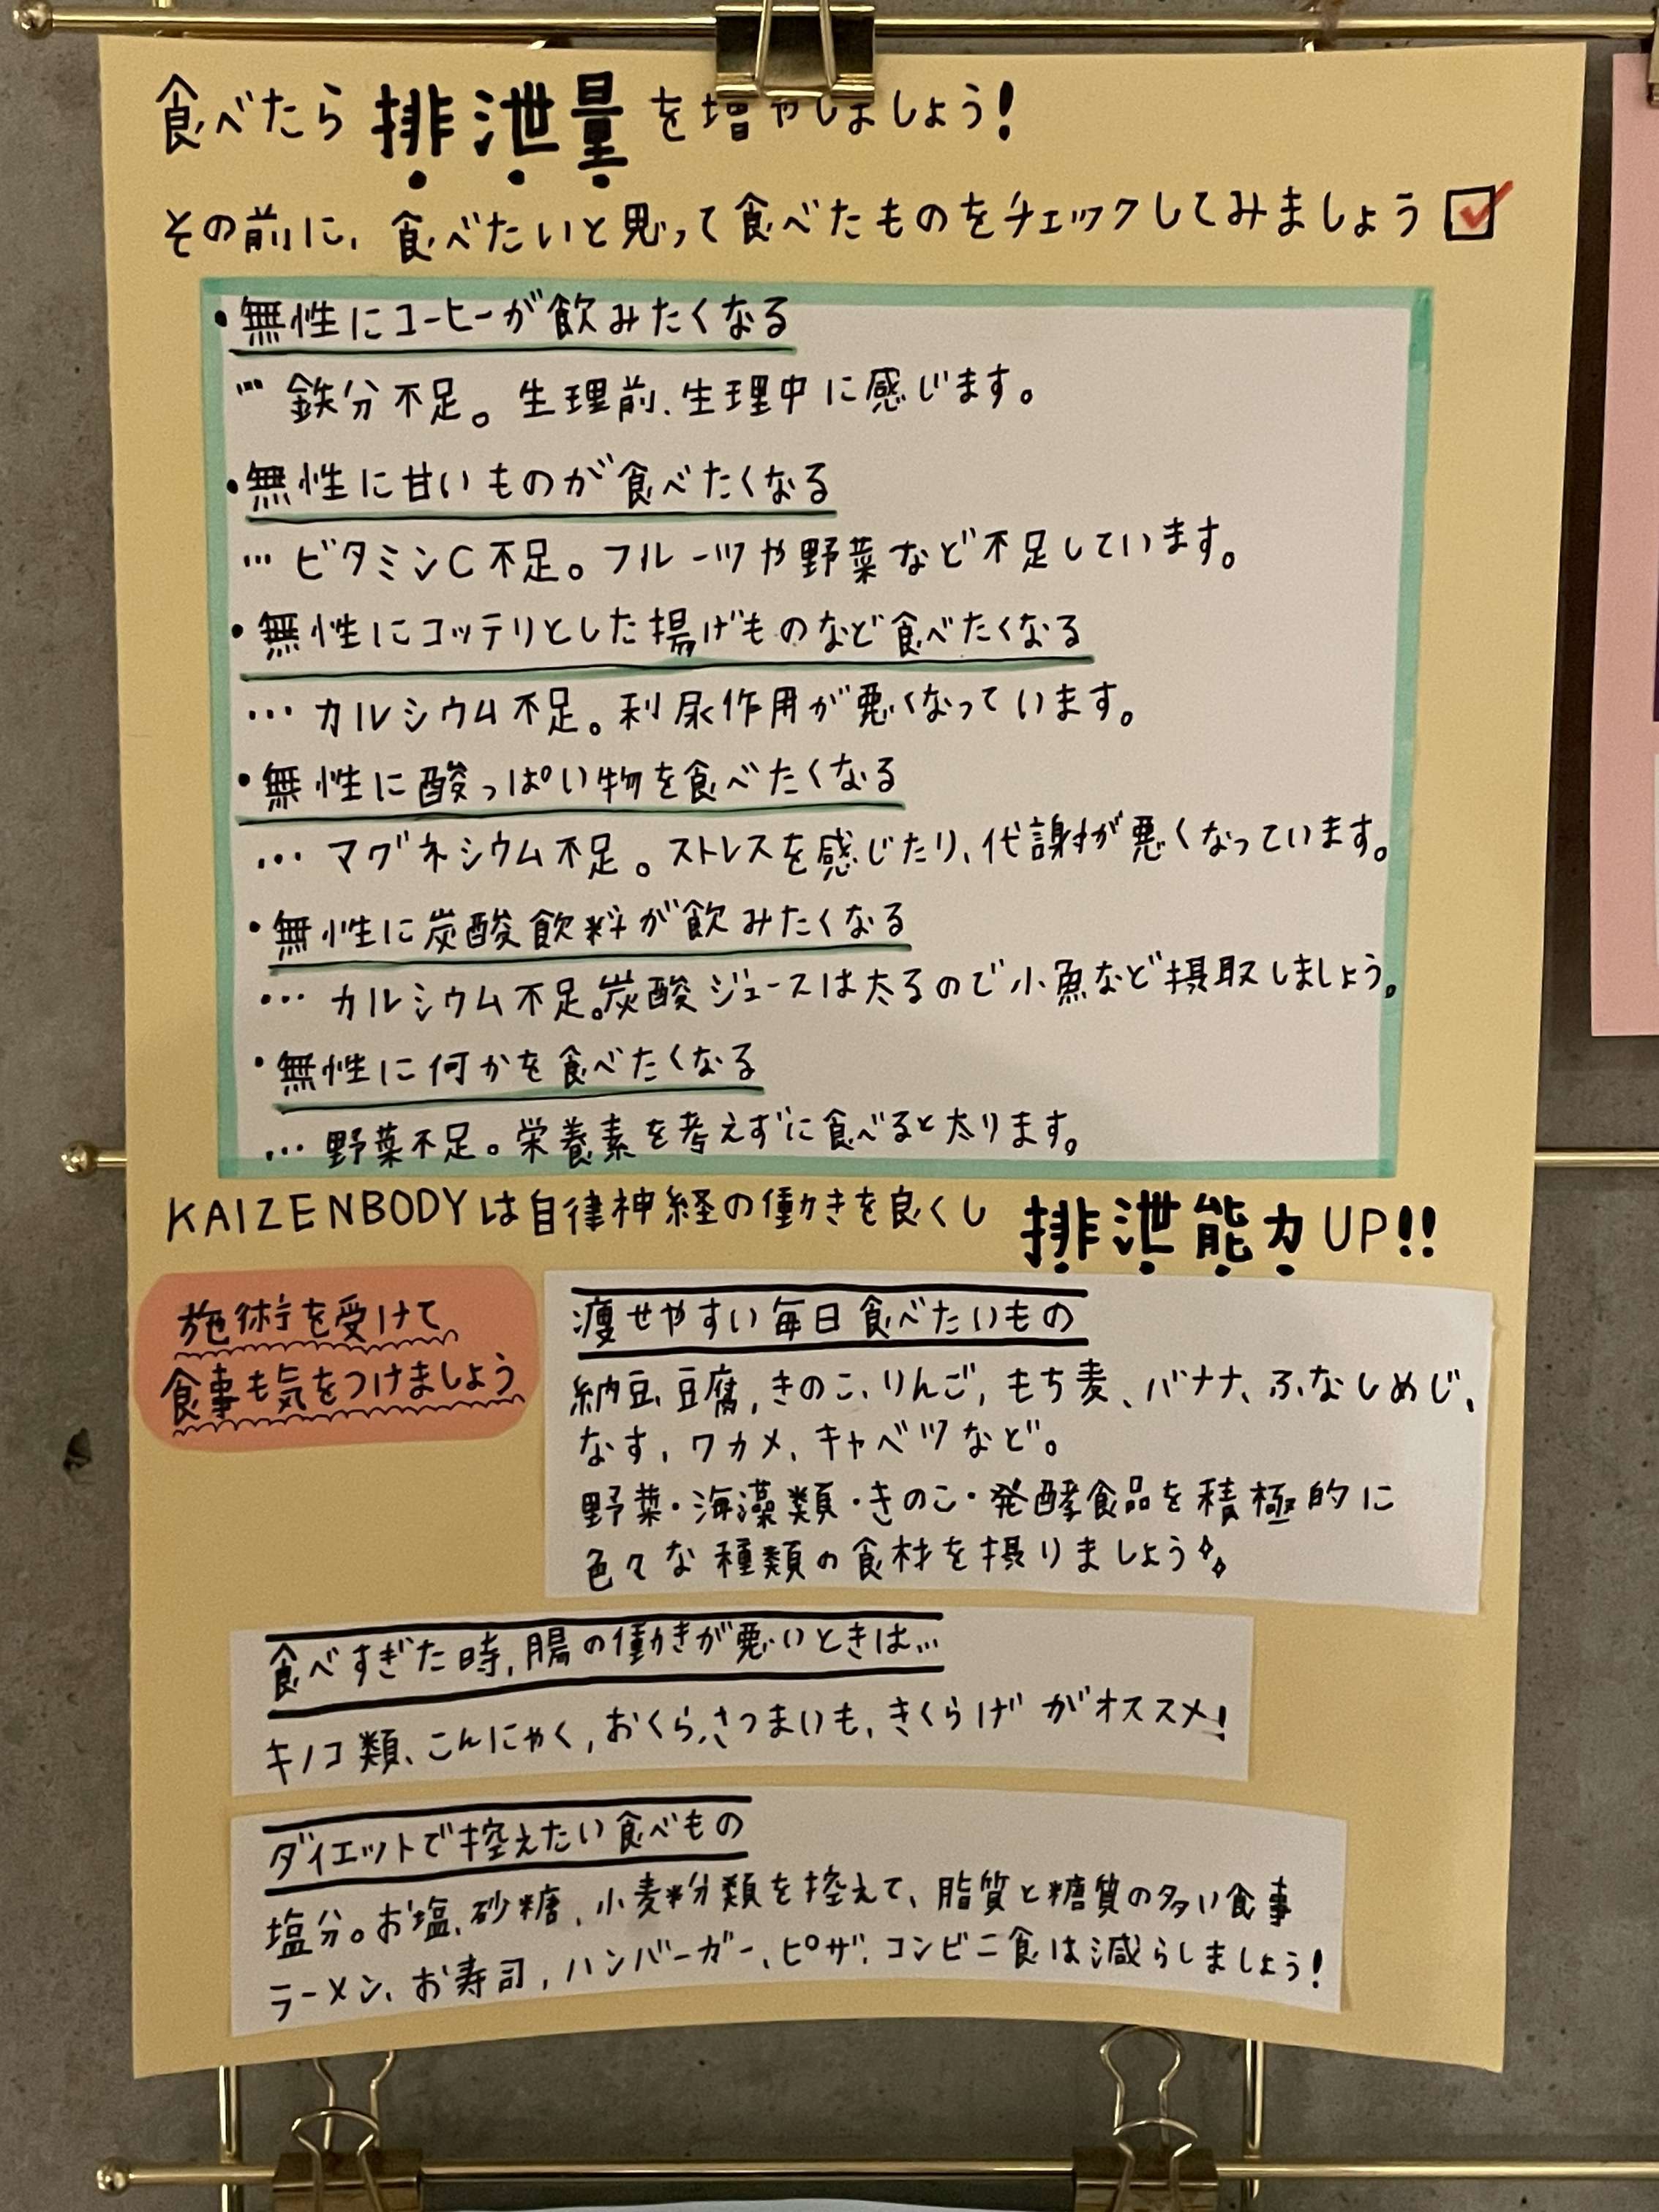 食べたら排泄量を増やしましょう!
その前に、食べたいと思って食べたものをチェックしてみましょう
・無性にコーヒーが飲みたくなる
… 鉄分不足。生理前、生理中に感じます。
・無性に甘いものが食べたくなる
… ビタミンC不足。フルーツや野菜など不足しています。
・無性にコッテリとした揚げものなど食べたくなる
… カルシウム不足。利尿作用が悪くなっています。
・無性に酸っぱい物を食べたくなる
… マグネシウム不足。ストレスを感じたり、代謝が悪くなっています。
・無性に炭酸飲料が飲みたくなる
… カルシウム不足。炭酸ジュースは太るので小魚など摂取しましょう。
・無性に何かを食べたくなる
… 野菜不足。栄養素を考えずに食べると太ります。
KAIZENBODYは自律神経の働きを良くし 排泄能力UP!!
施術を受けて
食事も気をつけましょう
痩せやすい毎日食べたいもの
納豆、豆腐、きのこ、りんご、もち麦、バナナ、ぶなしめじ、
なす、ワカメ、キャベツなど。
野菜・海藻類・きのこ・発酵食品を積極的に
色々な種類の食材を摂りましょう
食べすぎた時、腸の働きが悪いときは…
キノコ類、こんにゃく、おくら、さつまいも、きくらげがオススメ!
ダイエットで控えたい食べもの
塩分。お塩、砂糖、小麦粉類を控えて、脂質と糖質の多い食事
ラーメン、お寿司、ハンバーガー、ピザ、コンビニ食は減らしましょう!